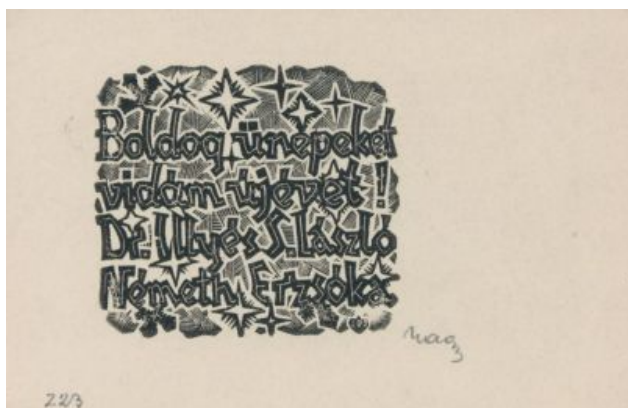 Boldog ünnepeket
vidám újévet!
Dr. Illyés S. László
Németh Erzsóka
Nagy
223